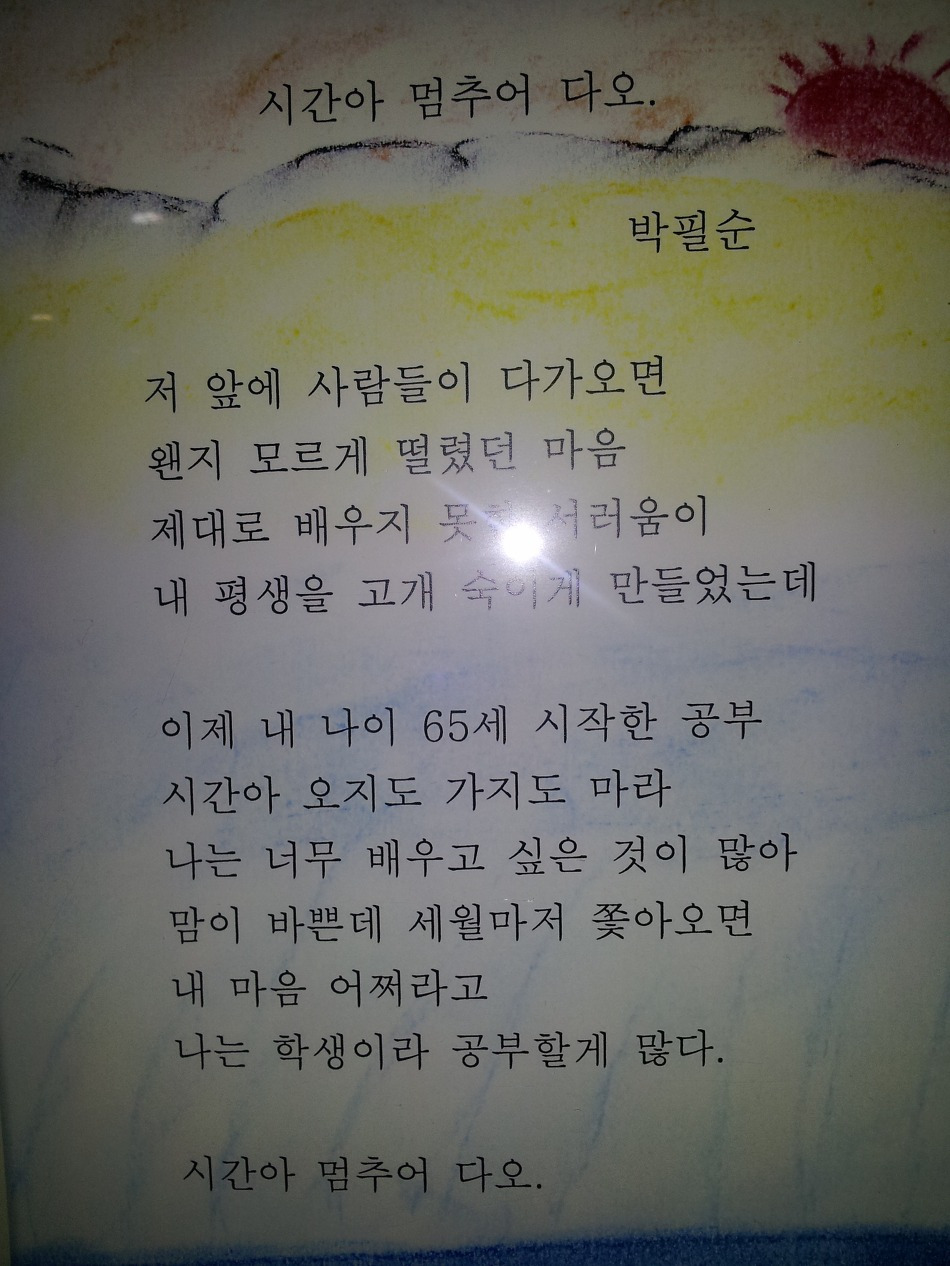 시간아 멈추어 다오.
박필순
저 앞에 사람들이 다가오면
왠지 모르게 떨렸던 마음
제대로 배우지 못한 서러움이
내 평생을 고개 숙이게 만들었는데
이제 내 나이 65세 시작한 공부
시간아 오지도 가지도 마라
나는 너무 배우고 싶은 것이 많아
맘이 바쁜데 세월마저 쫓아오면
내 마음 어쩌라고
나는 학생이라 공부할게 많다.
시간아 멈추어 다오.